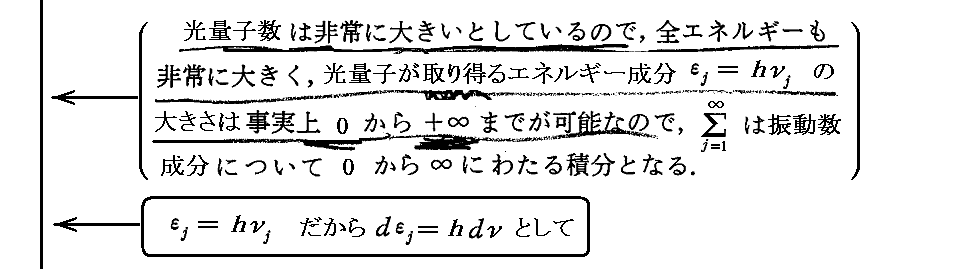 光量子数は非常に大きいとしているので, 全エネルギーも
非常に大きく, 光量子が取り得るエネルギー成分 εj = hνj の
大きさは事実上 0 から +∞ までが可能なので, ∑_{j=1}^{∞} は振動数
成分について 0 から ∞ にわたる積分となる.
εj = hνj だから dεj = hdν として